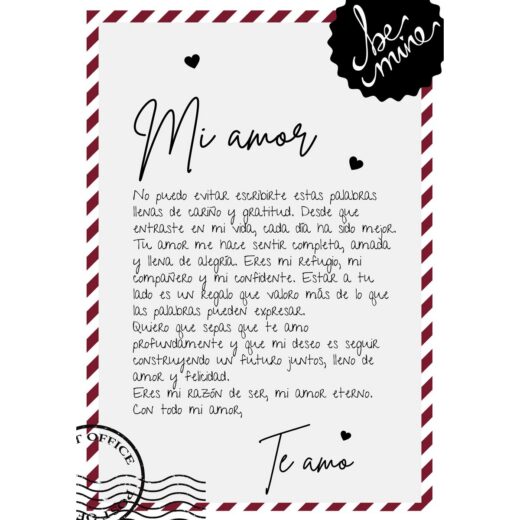 be
mine
Mi amor
No puedo evitar escribirte estas palabras
llenas de cariño y gratitud. Desde que
entraste en mi vida, cada día ha sido mejor.
Tu amor me hace sentir completa, amada
y llena de alegría. Eres mi refugio, mi
compañero y mi confidente. Estar a tu
lado es un regalo que valoro más de lo que
las palabras pueden expresar.
Quiero que sepas que te amo
profundamente y que mi deseo es seguir
construyendo un futuro juntos, lleno de
amor y felicidad.
Eres mi razón de ser, mi amor eterno.
Con todo mi amor,
Te amo
T OFFICE